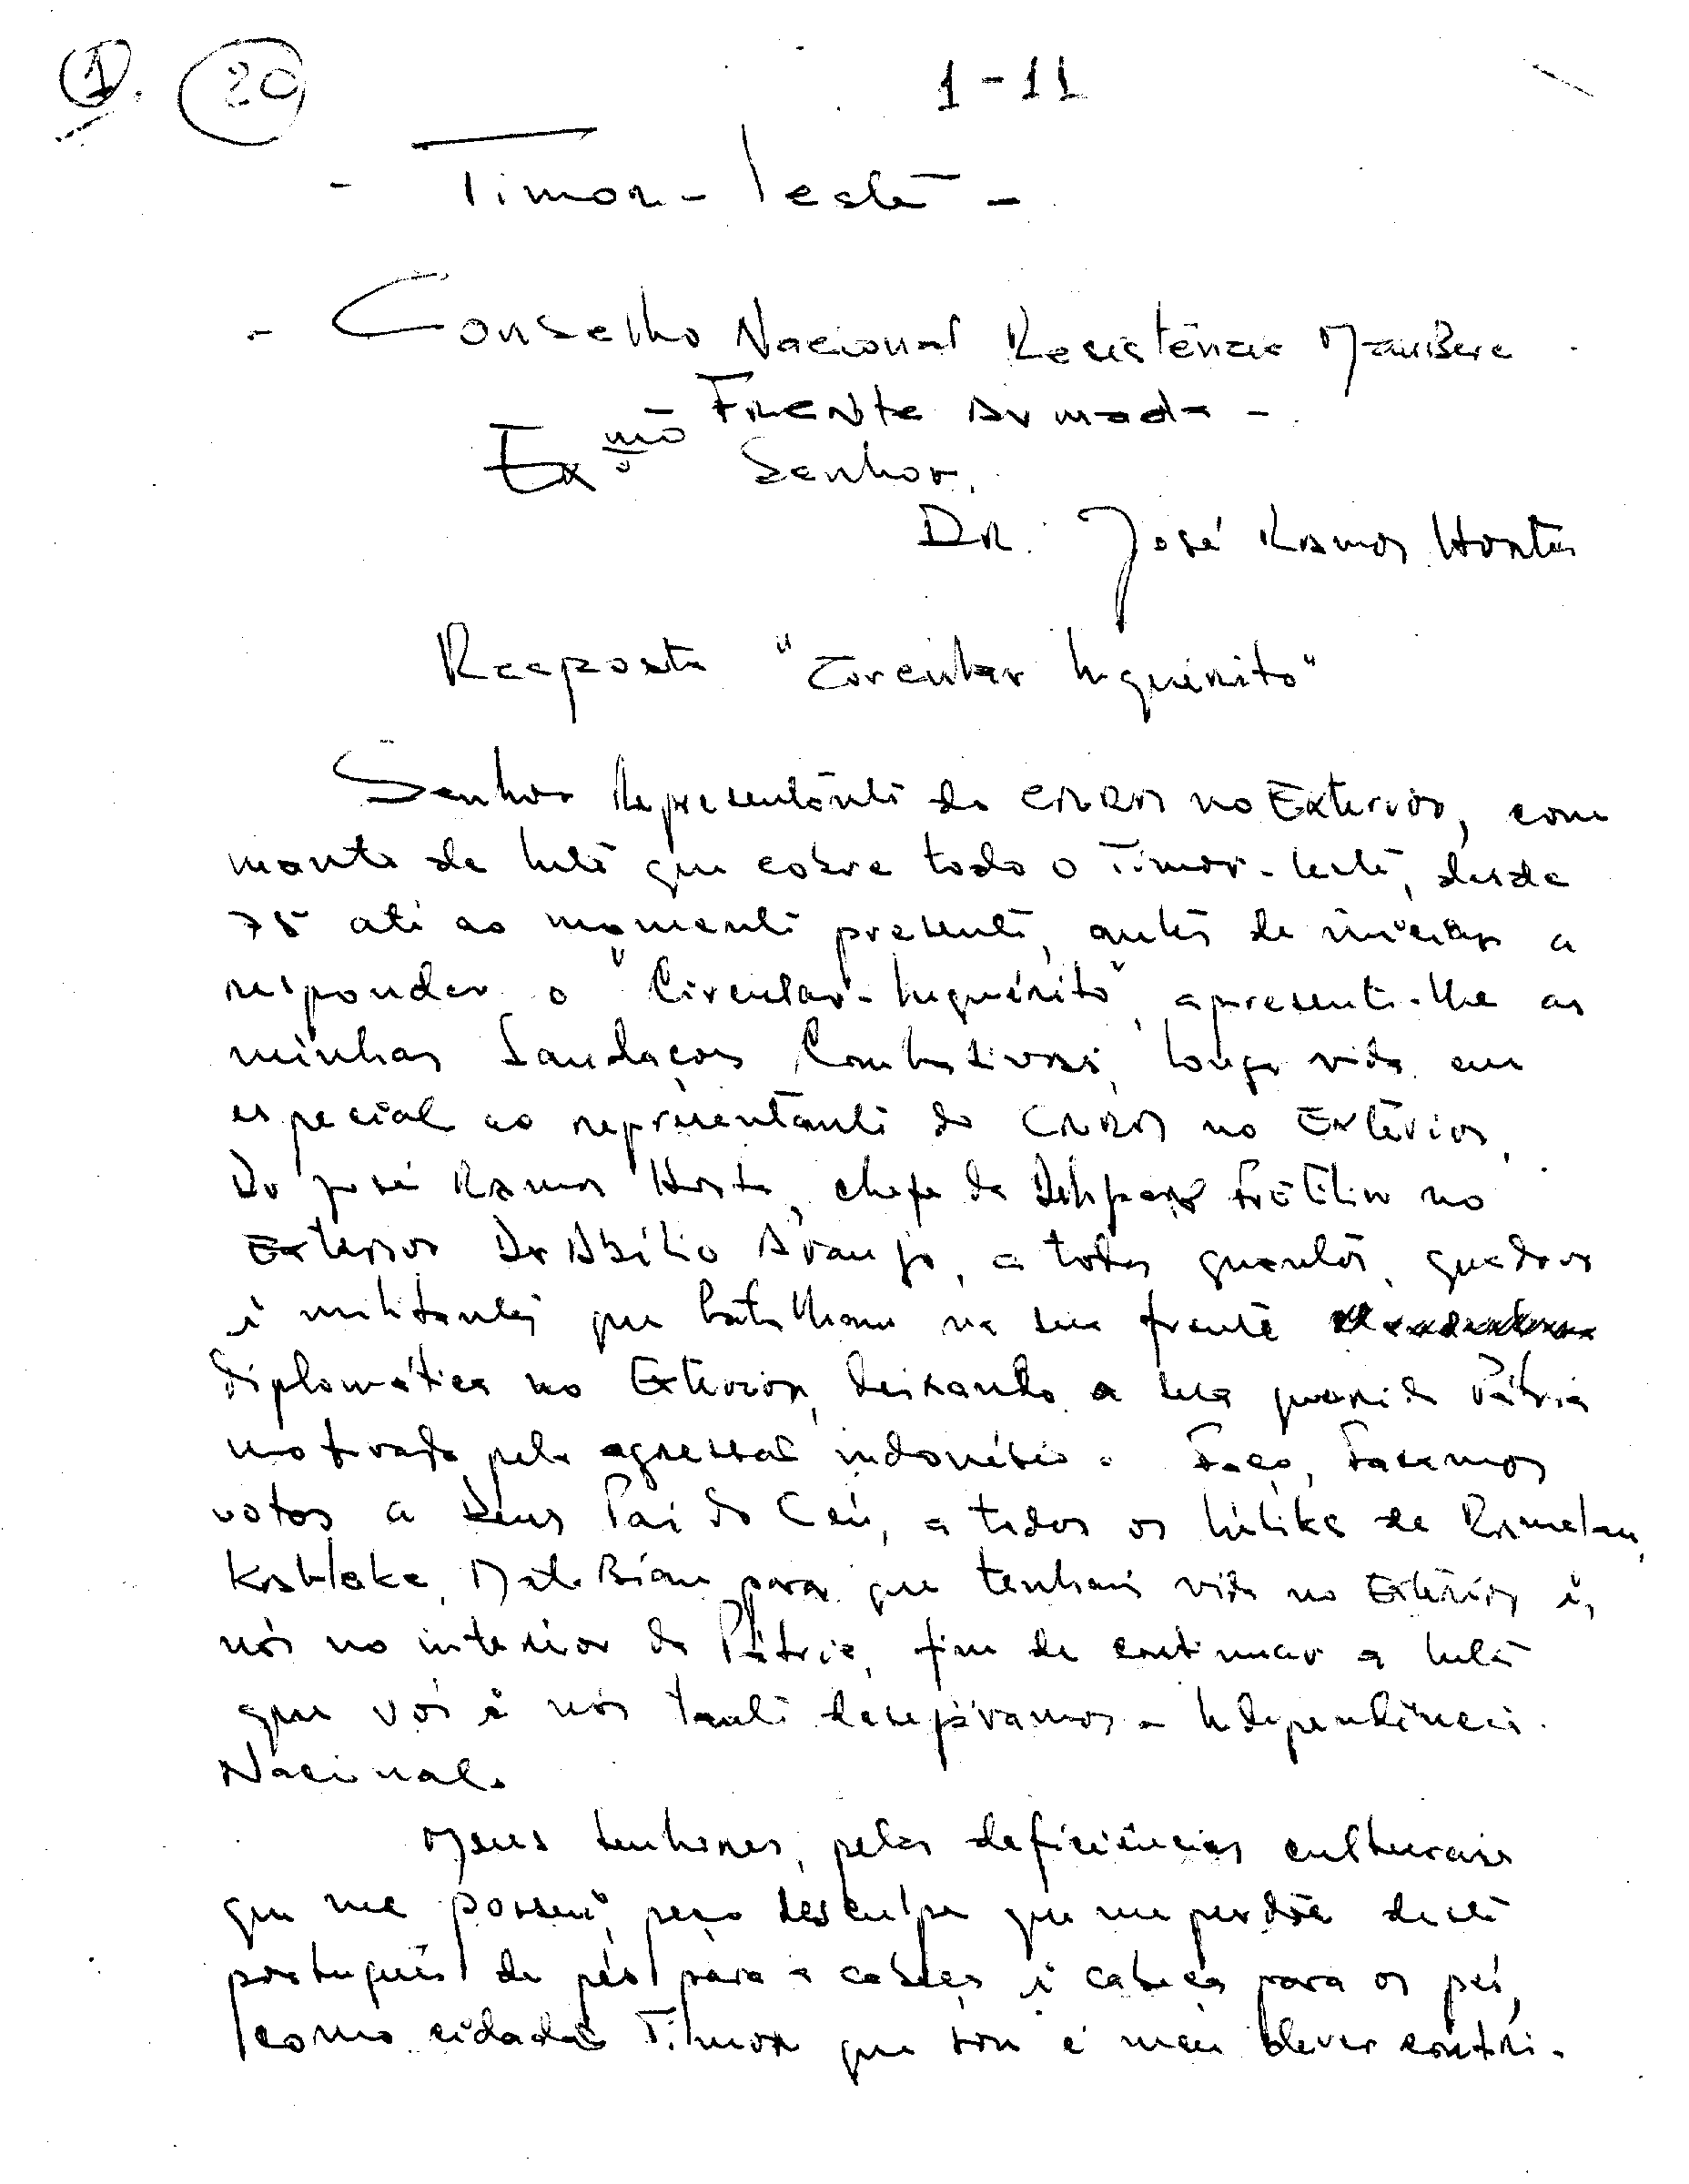 1. 20 1-11
- Timor-leste -
- Conselho Nacional Resistência MauBere
- Frente Armada -
Exmo Senhor,
DR. José Ramos Horta
Resposta "Circular Inquérito"
Senhor Representante do CNRM no Exterior, com
manto de luto que cobre todo o Timor-leste, desde
75 até ao momento presente, antes de iniciar a
responder o "Circular-Inquérito", apresento-lhe as
minhas Saudações Combativas, longa vida em
especial ao representante do CNRM no Exterior,
Dr José Ramos Horta, chefe da Delegação Fretilin no
Exterior Dr Abílio Araujo, a todos quantos, quadros
e militantes que batalham na sua frente
diplomática no Exterior, deixando a sua querida Pátria
motivada pela agressão indonésia. Faço, Fazemos
votos a Deus Pai do Céu, a todos os lúliks de Ramelau,
Kablake, MateBian para que tenhais vida no Exterior e,
nós no interior da Pátria, fim de continuar a luta
que vós e nós tanto desejávamos - Independência
Nacional.
Meus senhores, pelas deficiências culturais
que me possui, peço desculpa que me perdoe deste
português de pés para a cabeça e cabeça para os pés,
como cidadão Timor que sou é meu dever contri-